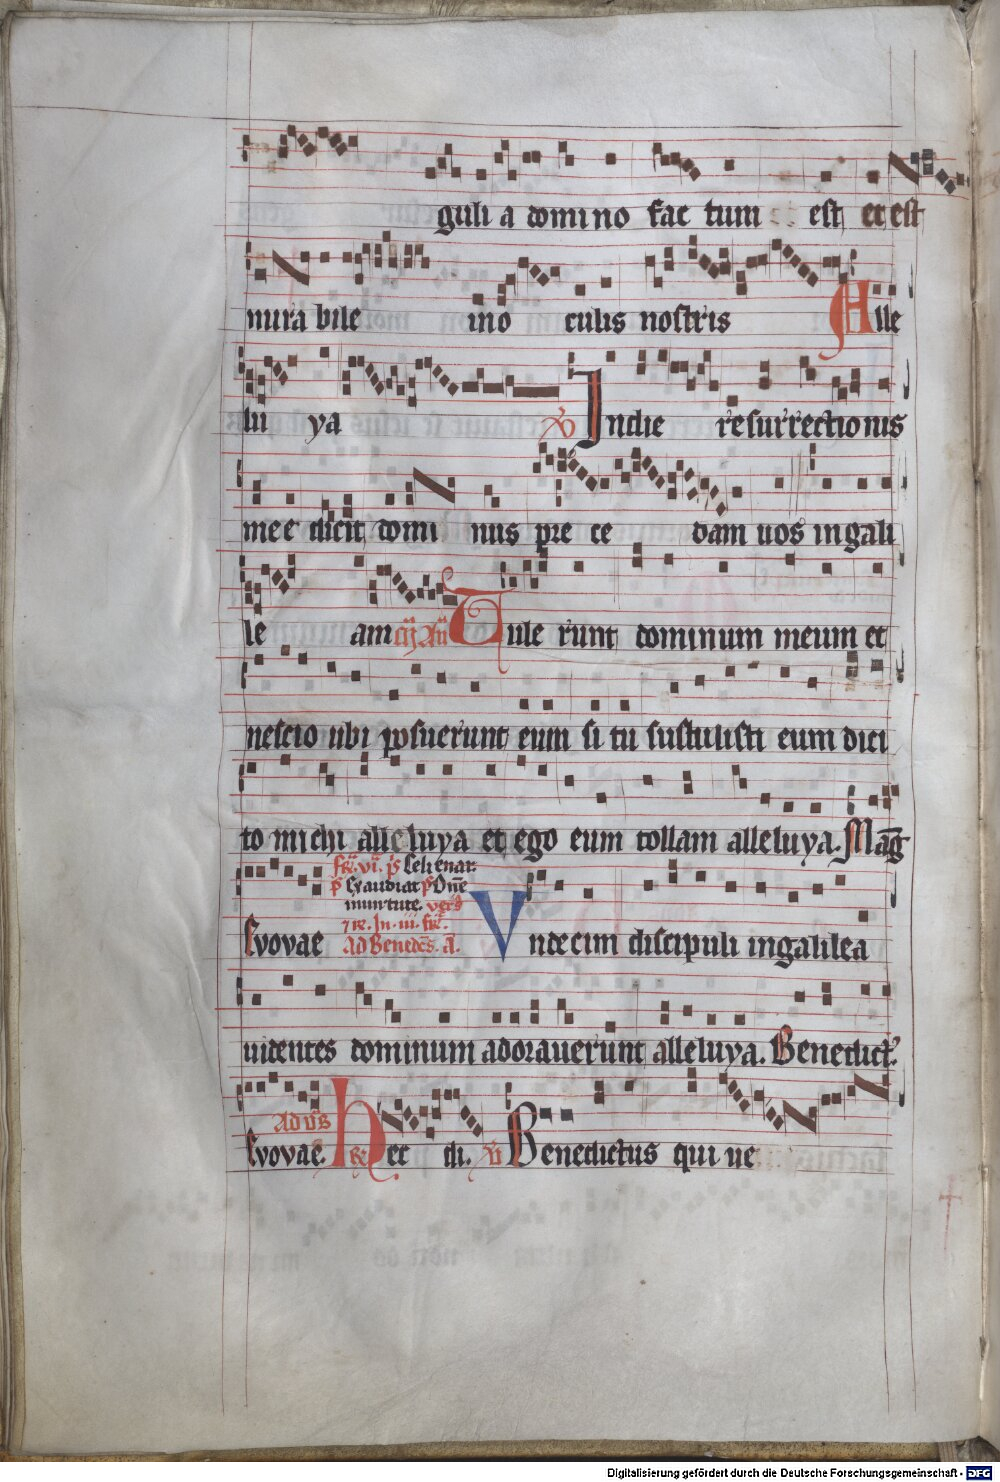 guli a domino fac tum est et est
mira bile ino culis nostris Alle
lu ya In die resurrectionis
mee dicit domi nus pre ce dam uos in gali
le am Tule runt dominum meum et
nescio ubi posuerunt eum si tu sustulisti eum dici
to michi alleluya et ego eum tollam alleluya. Mag
fr. vi. ps
ps Exaudiat ps Dne
in uirtute. vers
Ad Bened. a.
Evovae Vndecim discipuli in galilea
uidentes dominum adorauerunt alleluya. Benedict.
Ad vs
Evovae. Hec di. Benedictus qui ue
Digitalisierung gefördert durch die Deutsche Forschungsgemeinschaft - DFG